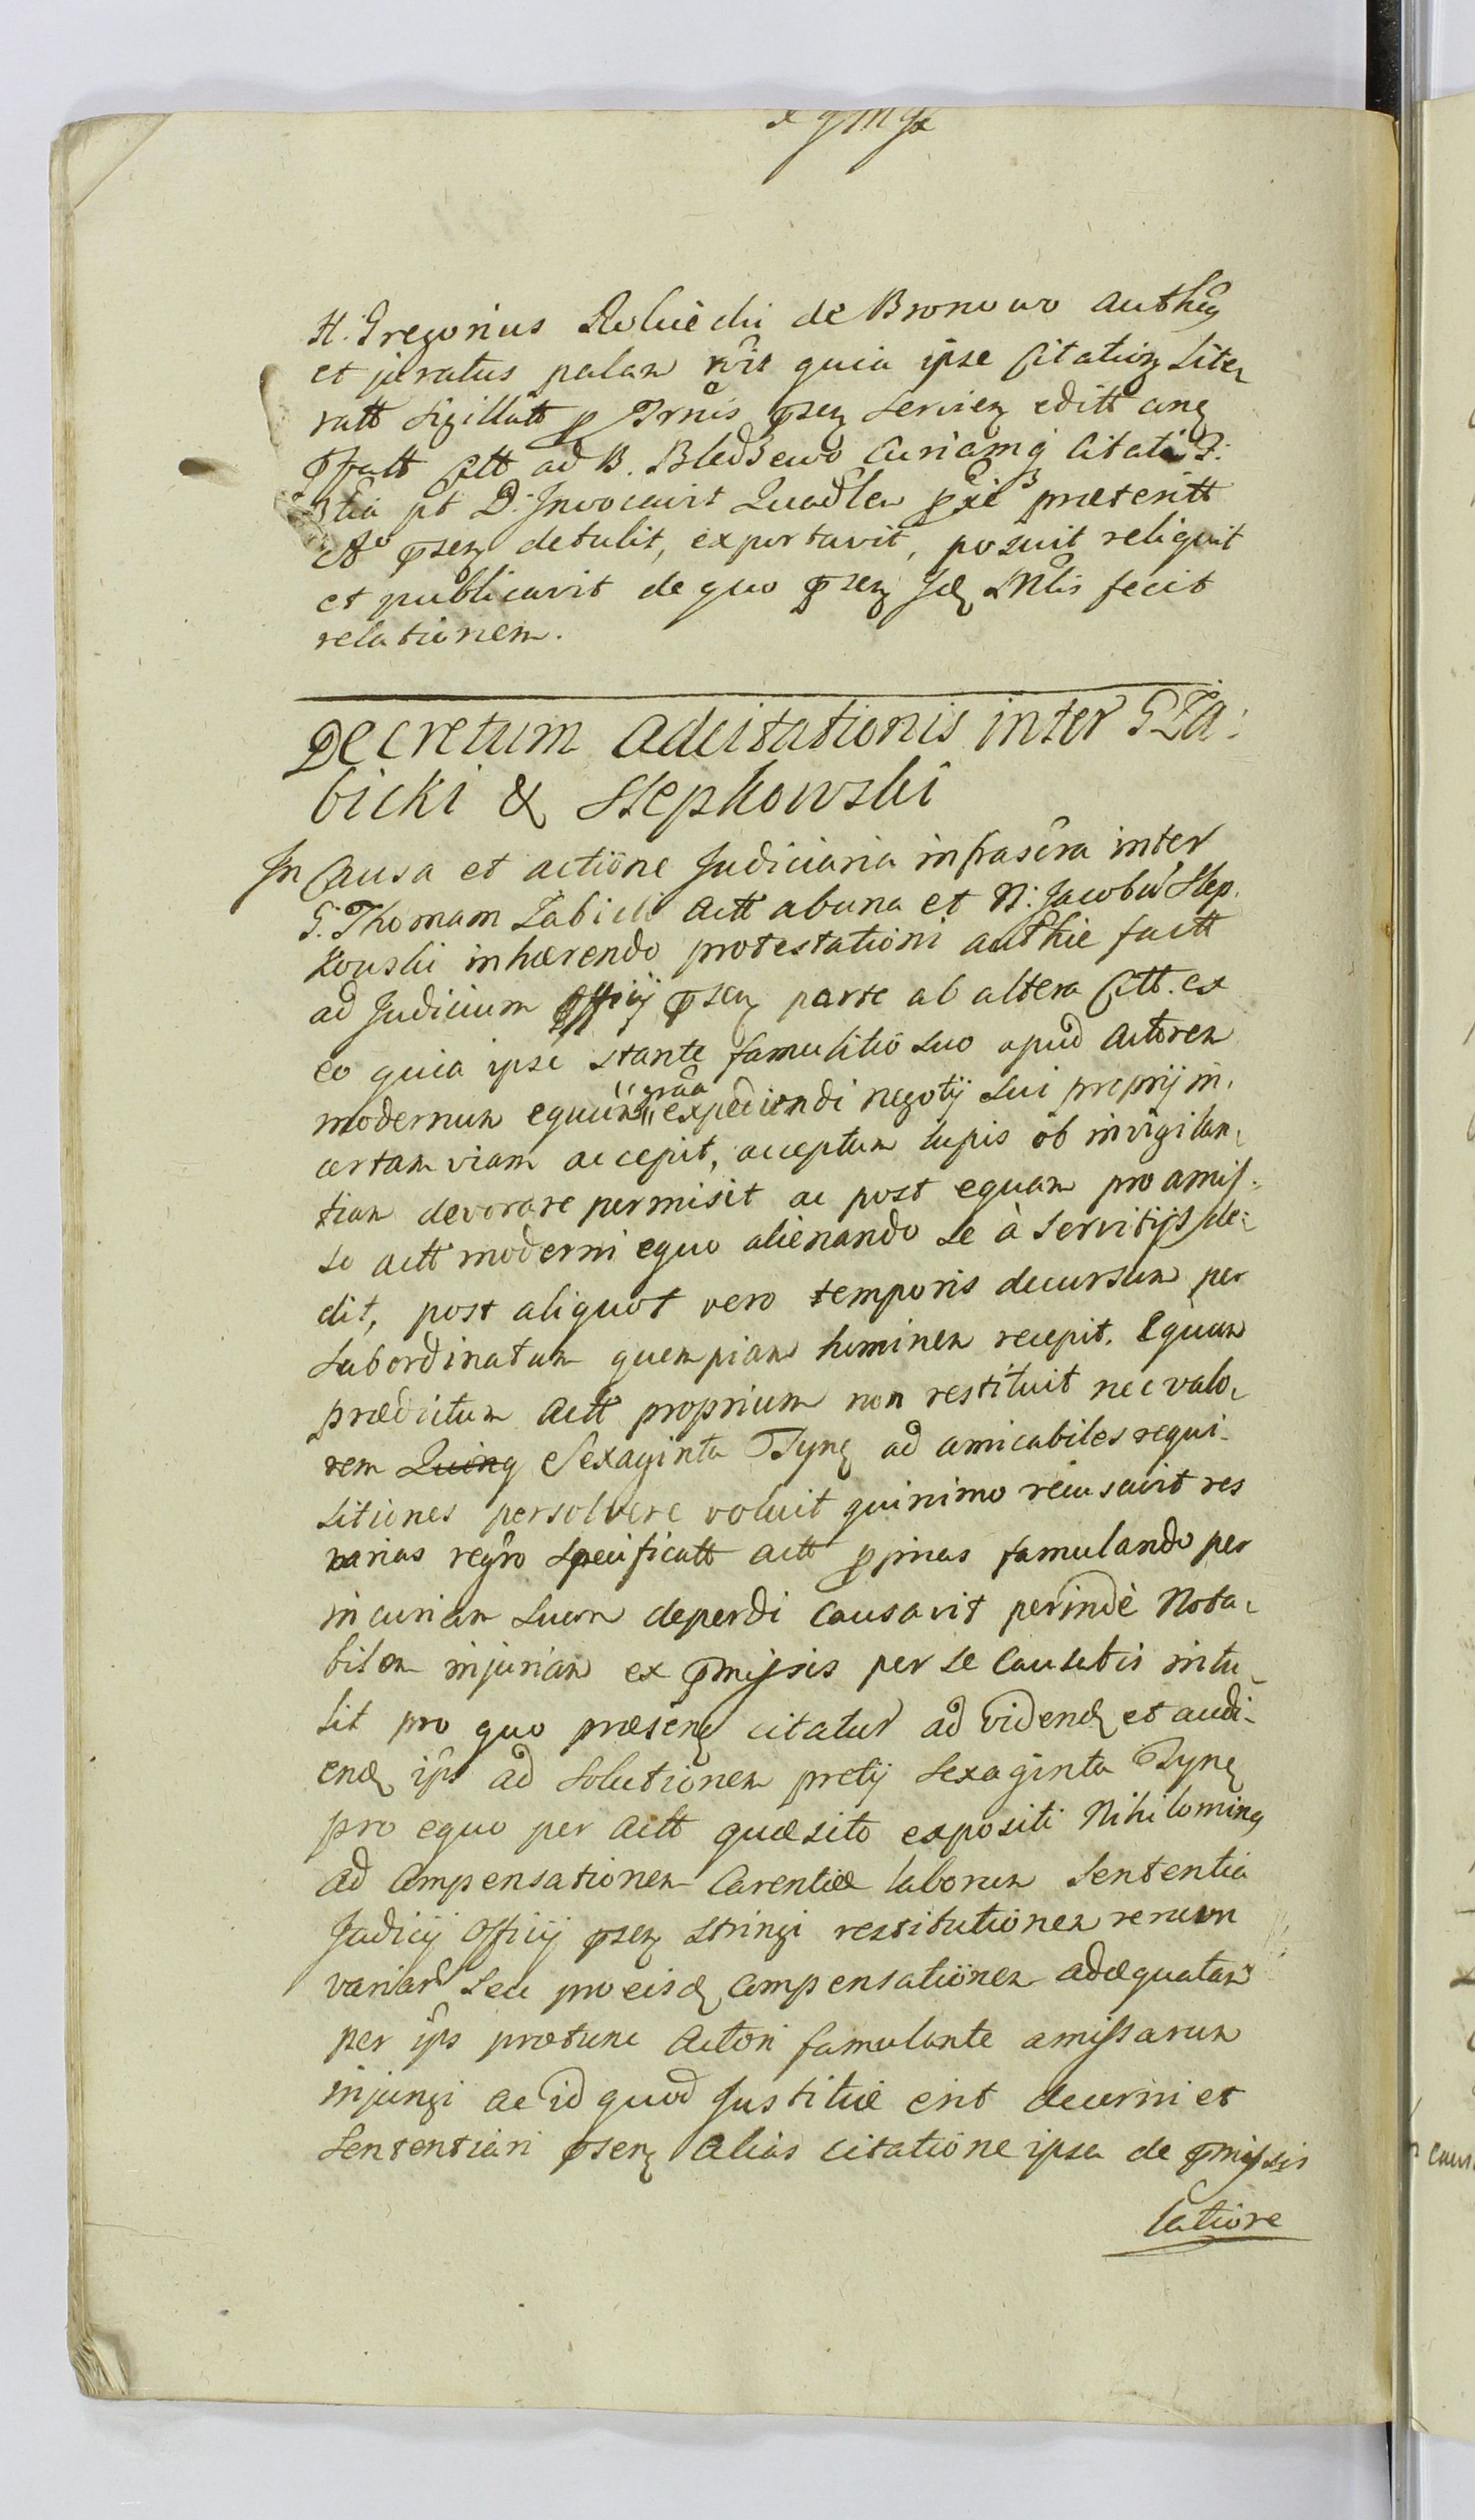 H. Gregorius de Bronowo auth
et juratus palam quia ipse Citation Lite
ratt Sigillatt p Trnis psen Servien editt
pffatt Ctt ad B. Bledzewo Curiamq Citati
pt D. Invocavit Quadlem pxe praeteritt
psen detulit, exportavit, posuit reliquit
et publicavit de quo psen fecit
relationem.
Decretum adcitationis inter G Za:
bicki & Stepkowski
In Causa et actione Judiciaria infrascra inter
G. Thomam Zabicki actt ab una et N: Jacobu Step.
kowski inhaerendo protestationi authie factt
ad Judicium Officij psen parte ab altera Ctt. ex
eo quia ipse stante famulitio suo apud actorem
modernum equum "graa
"expediendi negotij sui proprij in,
certam viam accepit, acceptum lupis ob invigilan,
tiam devorare permisit ac post equam pro amis.
so actt moderni equo alienando se à servitijs de:
dit, post aliquot vero temporis decursum per
subordinatum quempiam hominem recepit. Equum
praedictum actt proprium non restituit nec valo,
rem Quinq Sexaginta Tynf ad amicabiles requi-
sitiones persolvere voluit quinimo recusavit res
varias regro specificatt actt pprias famulando per
incuriam suam deperdi causavit perindè Nota,
bilem injuriam ex pmissis per se causatis intu-
lit pro quo praesens citatur ad vidend et audi-
end ips ad solutionem pretij sexaginta Tynf
pro equo per actt quaesito expositi Nihilominq
ad Compensationem Carentiae laborum Sententia
Judicij Officij psen stringi restitutionem rerum
variar seu pro eisd Compensationem adaequatam
per ips protunc actori famulante amissarum
injungi ac id quod Justitiae erit decerni et
Sententiari psen alias citatione ipsa de pmissis
latiore